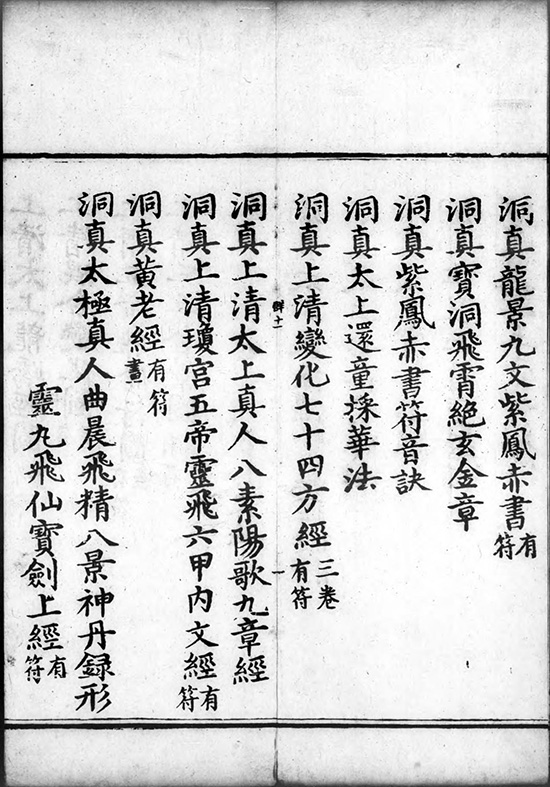 洞真龍景九文紫鳳赤書有符
洞真寶洞飛霄絕玄金章
洞真紫鳳赤書符音訣
洞真太上還童採華法
洞真上清變化七十四方經三卷有符
洞真上清太上真人八素陽歌九章經
洞真上清瓊宮五帝靈飛六甲內文經有符
洞真黃老經有符畫
洞真太極真人曲晨飛精八景神丹錄形
靈九飛仙寶劍上經有符